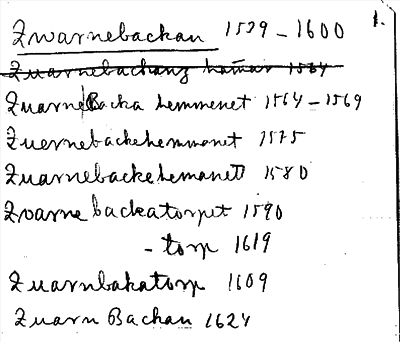 1.
Zwarnebackan 1539 - 1600
Zuarnebackans hamar 1564
Zuarnebacka hemmenet 1564 - 1569
Zuernebackehemmanet 1575
Zuarnebackehemanett 1580
Zvarnebackatorpet 1590
- torp 1619
Zuarnbakatorp 1609
Zuarn Backan 1624